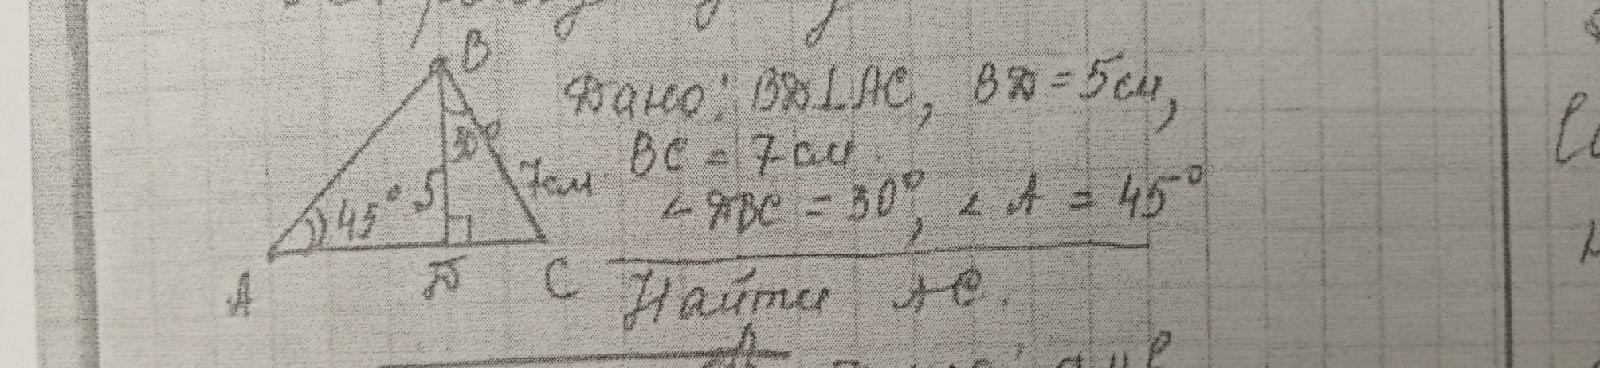 B
Дано: BD⊥AC, BD = 5 см,
BC = 7 см.
∠ DBC = 30°, ∠ A = 45°
30°
7 см.
45°
5
A
D
C
Найти AC.